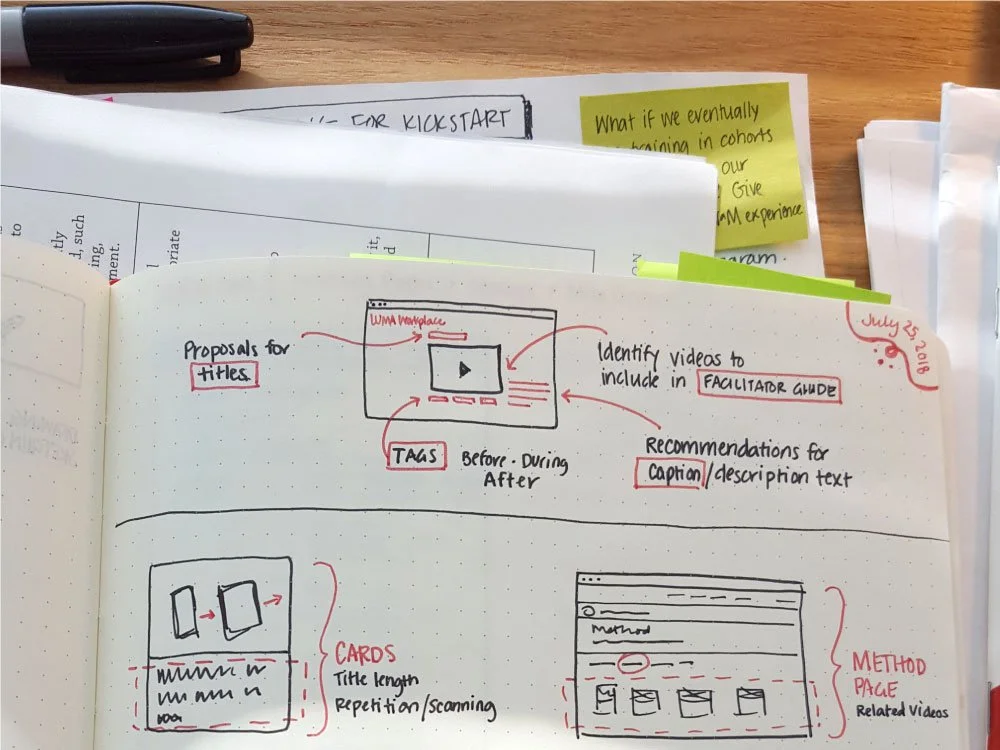 FOR KICKSTART
What if we eventually
training in cohorts
our
Give
experience
to
such
it,
July 25, 2018
WMA Workplace
Proposals for
titles
Identify videos to
include in FACILITATOR GUIDE
TAGS Before · During
After
Recommendations for
Caption/description text
CARDS
Title length
Repetition/scanning
Method
METHOD
PAGE
Related Videos